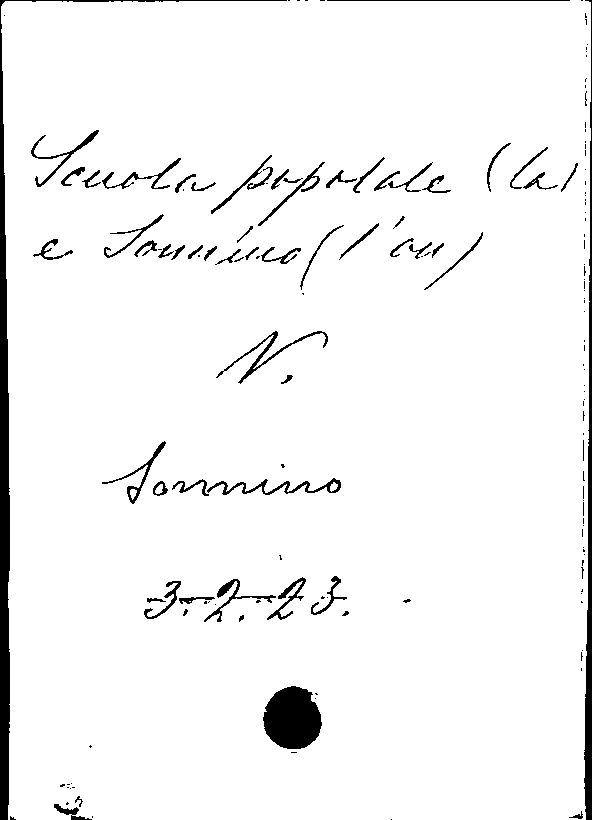 Scuola popolale (la)
e Sonnino (l'on)
V.
Sonnino
3.2.23.